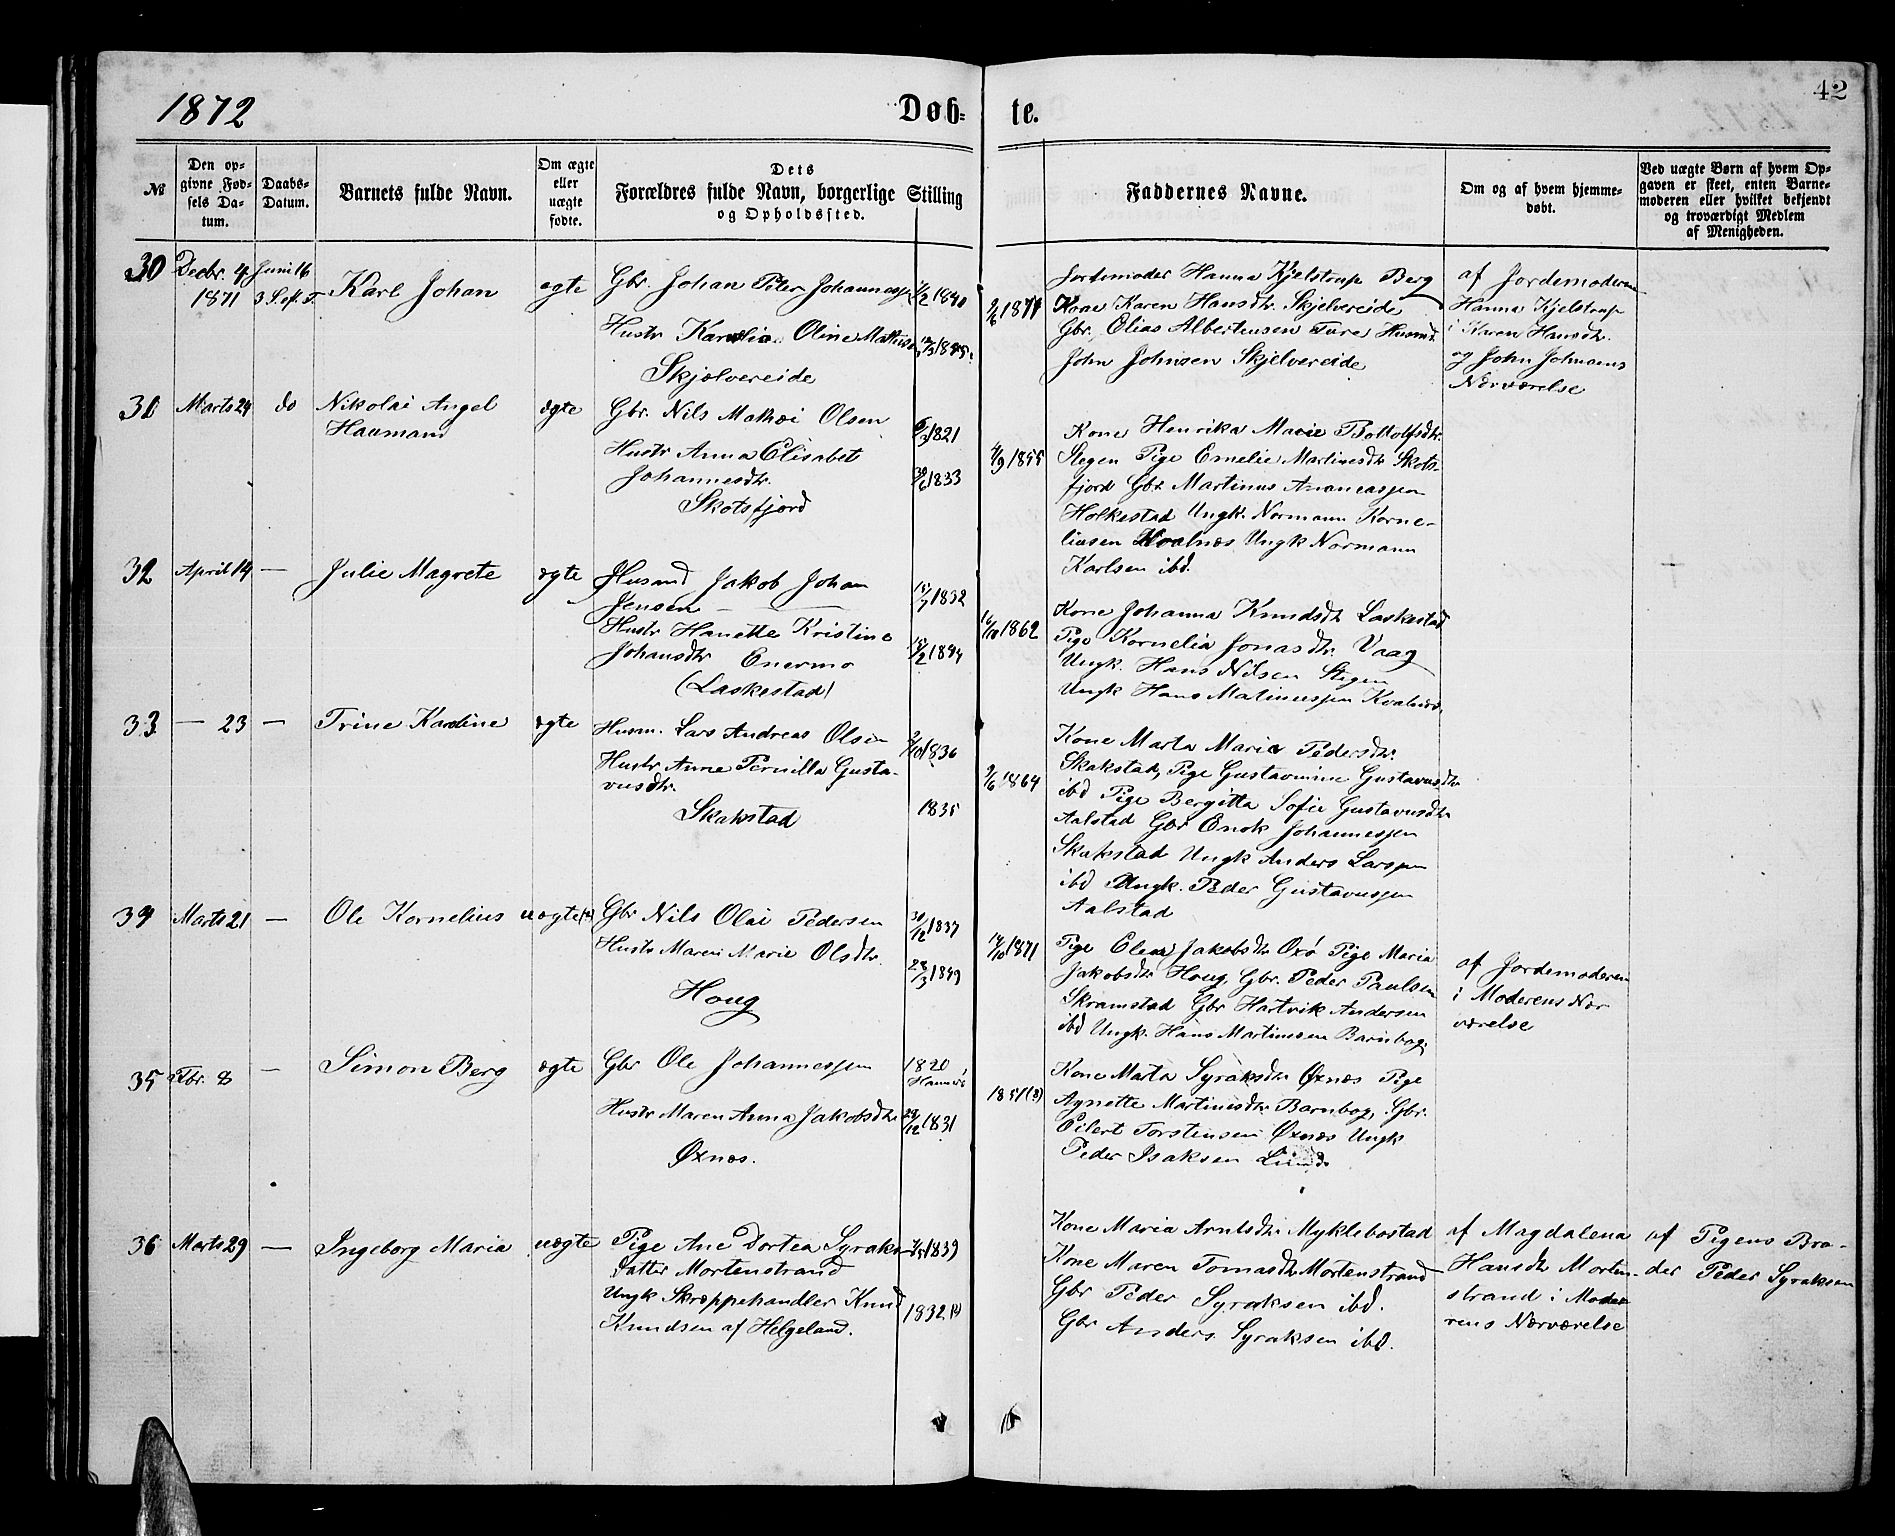 42
1872
Døb-
te.
№
Den op-
givne Fød-
sels Da-
tum.
Daabs-
Datum.
Barnets fulde Navn.
Om ægte
eller
uægte
fødte.
Dets
Forældres fulde Navn, borgerlige Stilling
og Opholdssted.
Faddernes Navne.
Om og af hvem hjemme-
døbt.
Ved uægte Børn af hvem Op-
gaven er skeet, enten Barne-
moderen eller hvilket bekjendt
og troværdigt Medlem
af Menigheden.
30
Decbr. 4
1871
Juni 16
3 S. ef. T.
Karl Johan
ægte
Gbr. Johan Peter Johannesen
1/2 1840
Hustr Oline
Skjelvereide
Jordemoder Hanna Kjelstrup Berg
Kone Karen Hansdtr. Skjelvereide
Gbr. Elias Albertsen Husmd.
John Johnsen Skjelvereide
af Jordemoderen
Hanna Kjelstrup
i Karen Hansdtr.
og John Johnsens
Nærværelse
31
Marts 24
do
Nikolai Angel
Haamand
ægte
Gbr. Nils Mathæi Olsen
6/3 1821
Hustr Anna Elisabet
Johannesdtr.
30/6 1833
Skotsfjord
4/9 1855
Kone Henrika Marie Bottolfsdtr.
Stegen Pige Emelie Martinesdtr Skots-
fjord Gbr Martinus
Holkestad Ungk. Normann Korne-
liusen Kvalnæs Ungk Normann
Karlsen ibd.
32
April 14
—
Julie Magrete
ægte
Husmd Jakob Johan
Jensen
15/7 1832
Hustr Hanette Kristine
Johansdtr Enermo
15/2 1844
(Laskestad)
16/10 1862
Kone Johanna Knudsdtr Laskestad
Pige Kornelia Jonasdtr. Vaag
Ungk. Hans Nilsen Stegen
Ungk Hans Matinussen Kvalnæs
33
— 23
—
Trine Kardine
ægte
Husm. Lars Andreas Olsen
2/10 1836
Hustr Anne Pernilla Gusta-
vusdtr.
1835
Skakstad
9/6 1864
Kone Marta Maria Pedersdtr.
Skakstad, Pige Gustavmine Gustavusdtr
ibd Pige Bergitta Sofie Gustavusdtr
Aalstad Gbr Enok Johannessen
Skakstad Ungk Anders Larssen
ibd Ungk. Peder Gustavussen
Aalstad
34
Marts 21
—
Ole Kornelius
uægte
Gbr Nils Olai Pedersen
30/12 1837
Hustr Maren Marie Olsdtr.
23/3 1849
Houg
14/10 1871
Pige Elen Jakobsdtr Oxø Pige Maria
Jakobsdtr Houg, Gbr. Peder Paulsen
Skramstad Gbr Hartvik Andersen
ibd Ungk. Hans Martinussen Barnbog
af Jordemoderen
i Moderens Nær
værelse
35
Fbr. 8
—
Simon Berg
ægte
Gbr Ole Johannessen
1820
Hustr Maren Anna Jakobsdtr
29/12 1831
Øxnæs.
1851
Kone Marta Syraksdtr Øxnæs Pige
Agnette Martinesdtr Barnbog, Gbr.
Eilert Torstensen Øxnæs Ungk
Peder Isaksen Lund
36
Marts 29
—
Ingeborg Maria
uægte
Pige Ane Dortea Syraks-
datter Mortenstrand
1839
Ungk Skræppehandler Knud
Knudsen af Helgeland.
1832
Kone Maria Arntsdtr Myklebostad
Kone Maren Tomasdtr Mortenstrand
Gbr Peder Syraksen ibd.
Gbr Anders Syraksen ibd.
af Magdalena
Hansdtr Morten-
strand i Mode
rens Nærværelse
af Pigens Bro-
der Peder Syraksen